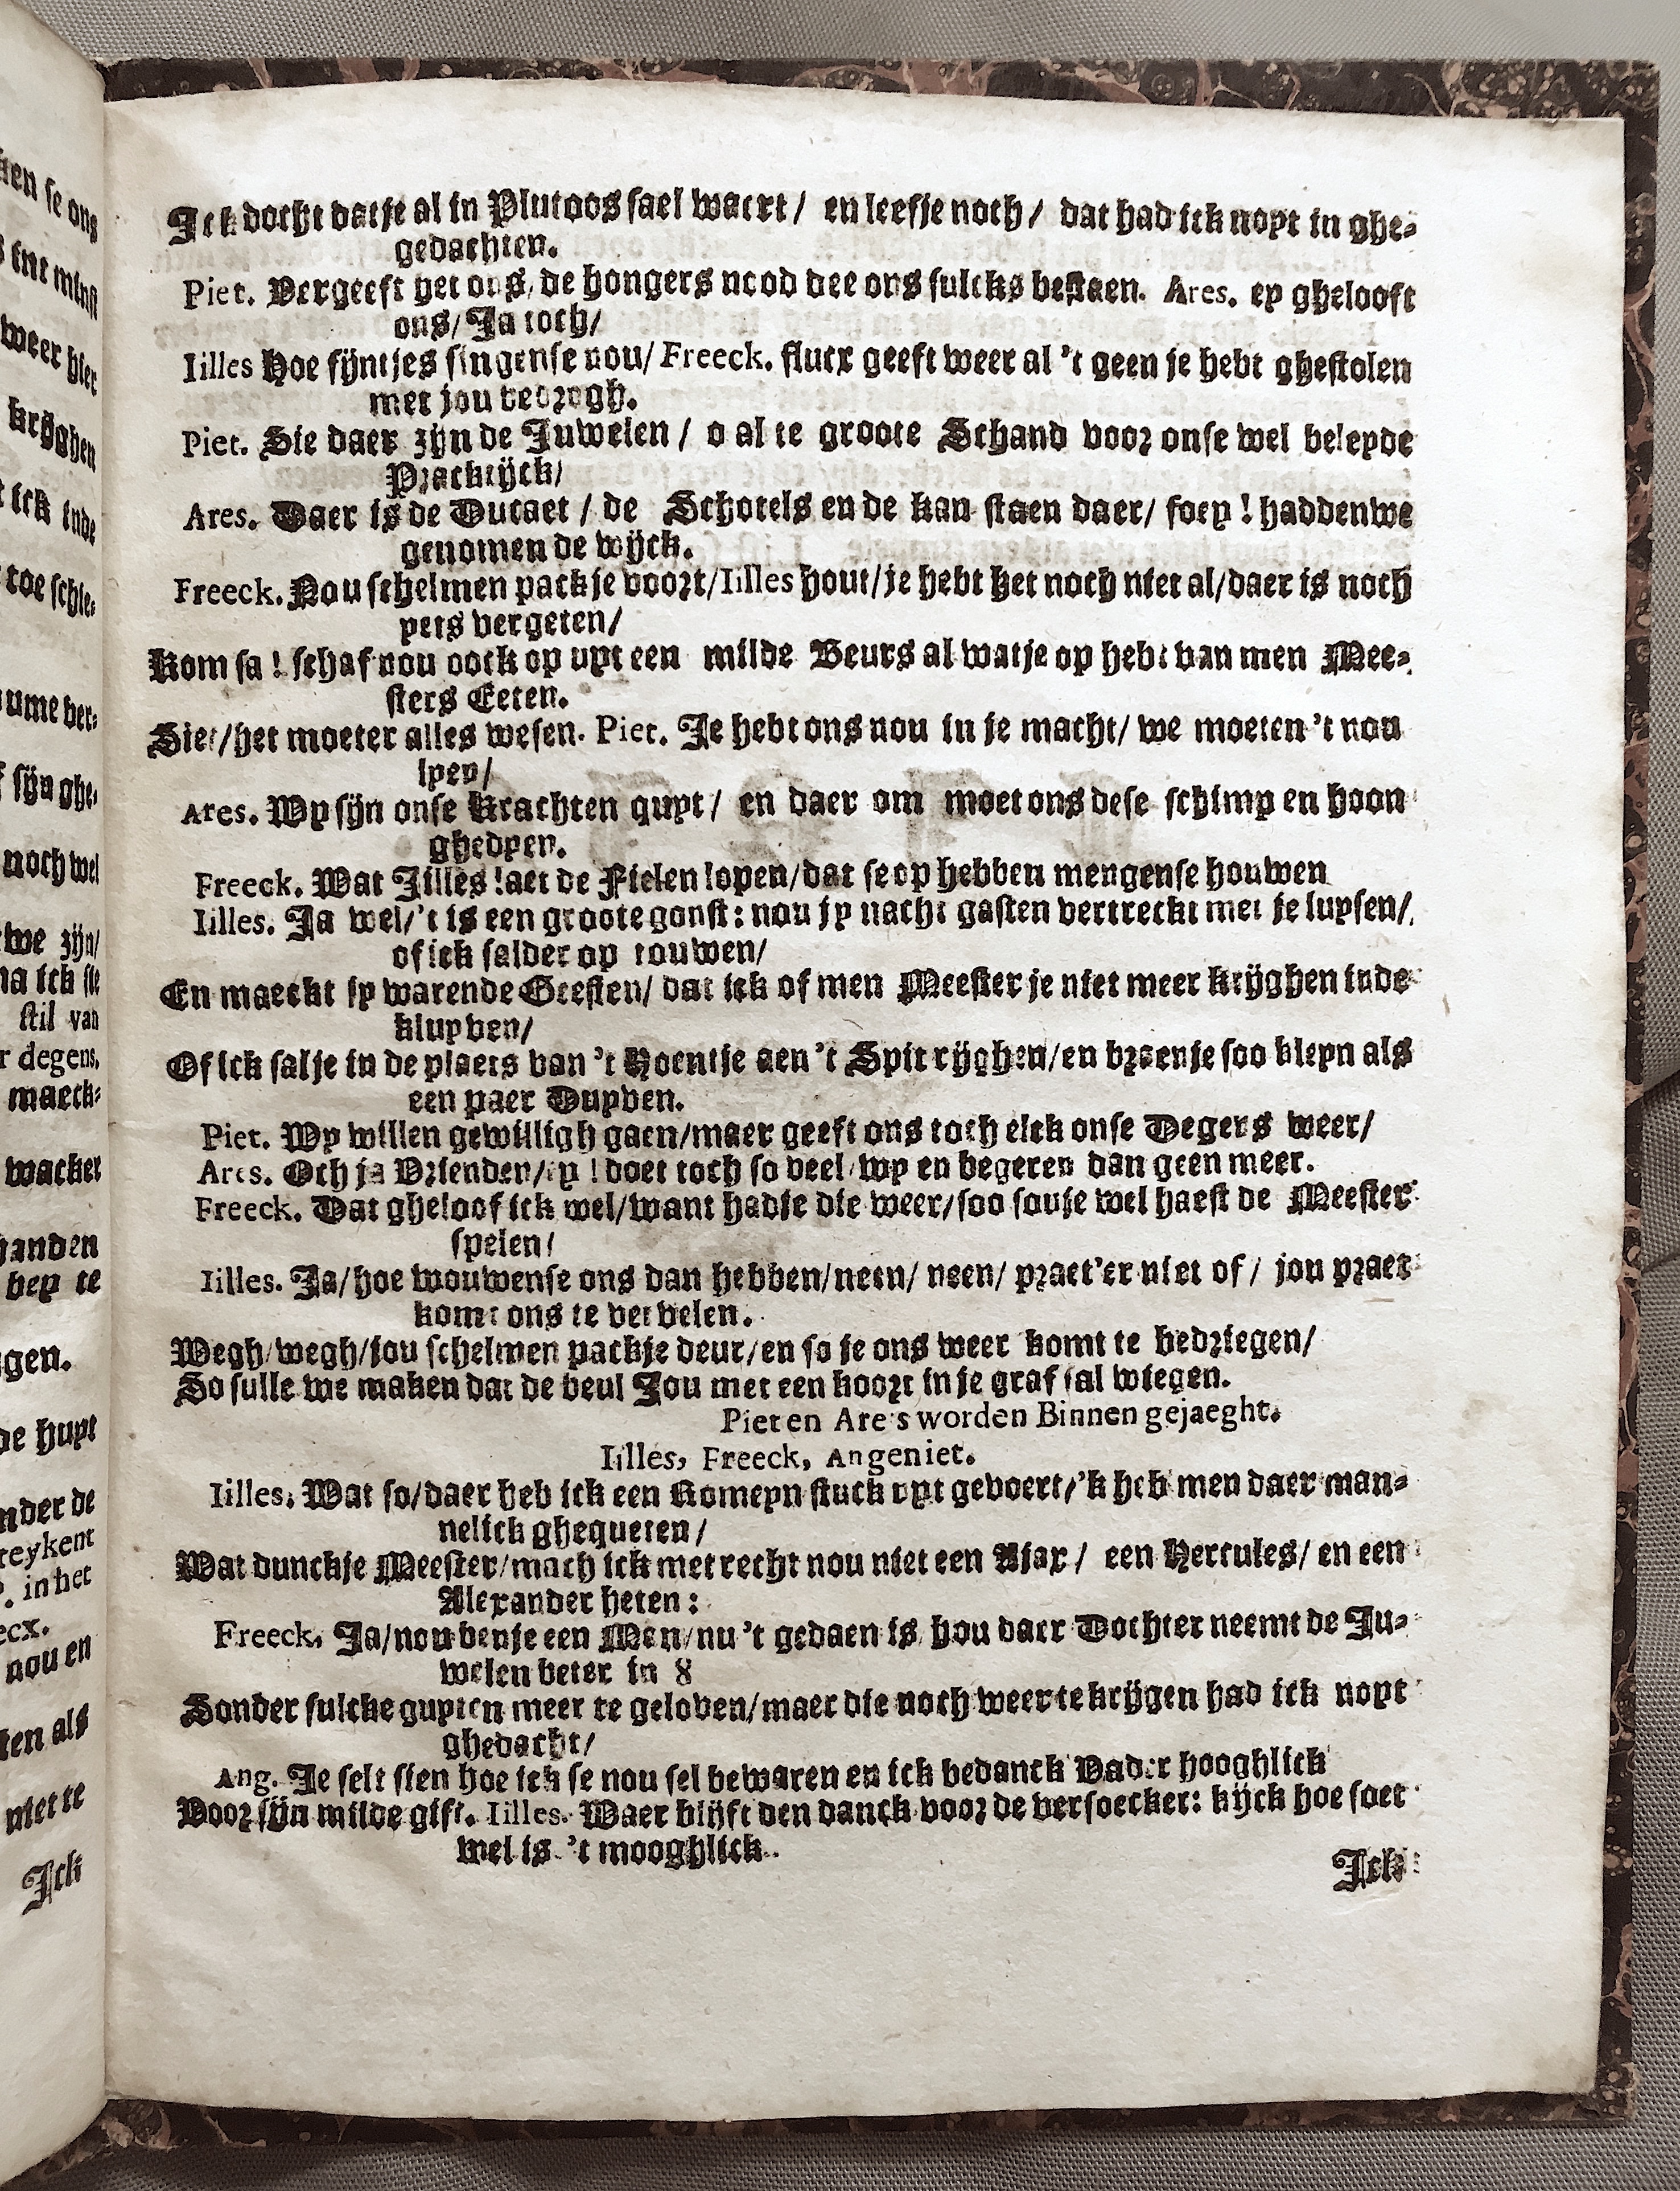 Ick docht datje al in Plutoos sael waert / en leefje noch / dat had ick noyt in ghe-
gedachten.
Piet. Vergeeft het ons, de hongers nood dee ons sulcks bestaen. Ares. ey ghelooft
ons/ Ja toch/
Iilles Hoe fijntjes singense nou/ Freeck. flucx geeft weer al 't geen je hebt ghestolen
met jou bedrogh.
Piet. Sie daer zijn de Juwelen / o al te groote Schand voor onse wel beleyde
Prackijck/
Ares. Daer is de Ducaet / de Schotels en de kan staen daer/ foey ! haddenwe
genomen de wijck.
Freeck. Nou schelmen packje voort/ Iilles hout/ je hebt het noch niet al/ daer is noch
yets vergeten/
Kom sa ! schaf nou oock op uyt een milde Beurs al watje op hebt van men Mee-
sters Eeten.
Siet/ het moeter alles wesen. Piet. Je hebt ons nou in je macht/ we moeten 't nou
lyen/
Ares. Wy sijn onse Krachten quyt / en daer om moet ons dese schimp en hoon
ghedyen.
Freeck. Wat Jilles laet de Fielen lopen/ dat se op hebben mengense houwen
Iilles. Ja wel/ 't is een groote gonst: nou jy nacht gasten vertreckt met je luysen/
of ick salder op touwen/
En maeckt jy warende Geesten/ dat ick of men Meester je niet meer krijghen inde
kluyven/
Of ick salje in de plaets van 't Hoentje aen 't Spit rijghen/ en braenje soo kleyn als
een paer Duyven.
Piet. Wy willen gewilligh gaen/ maer geeft ons toch elck onse Degers weer/
Ares. Och ja Vrienden/ ey ! doet toch so veel/ wy en begeren dan geen meer.
Freeck. Dat gheloof ick wel/ want hadje die weer/ soo souje wel haest de Meester
spelen/
Iilles. Ja/ hoe wouwense ons dan hebben/ neen/ neen/ praet'er niet of / jou praet
komt ons te vervelen.
Wegh/ wegh/ jou schelmen packje deur/ en so je ons weer komt te bedriegen/
So sulle we maken dat de beul Jou met een koort in je graf sal wiegen.
Piet en Ares worden Binnen gejaeght.
Iilles, Freeck, Angeniet.
Iilles. Wat so/ daer heb ick een Romeyn stuck uyt gevoert/ 'k heb men daer man-
nelick ghequeten/
Wat dunckje Meester/ mach ick met recht nou niet een Ajax / een Hercules/ en een
Alexander heten :
Freeck. Ja/ nou benje een Man/ nu 't gedaen is/ hou daer Dochter neemt de Ju-
welen beter in 8
Sonder sulcke guyten meer te geloven/ maer die noch weer te krijgen had ick noyt
ghedacht/
Ang. Je selt sien hoe ick se nou sel bewaren en ick bedanck Vader hooghlick
Voor sijn milde gift. Iilles. Waer blijft den danck voor de versoecker: kijck hoe soet
wel is 't mooghlick.
Ick